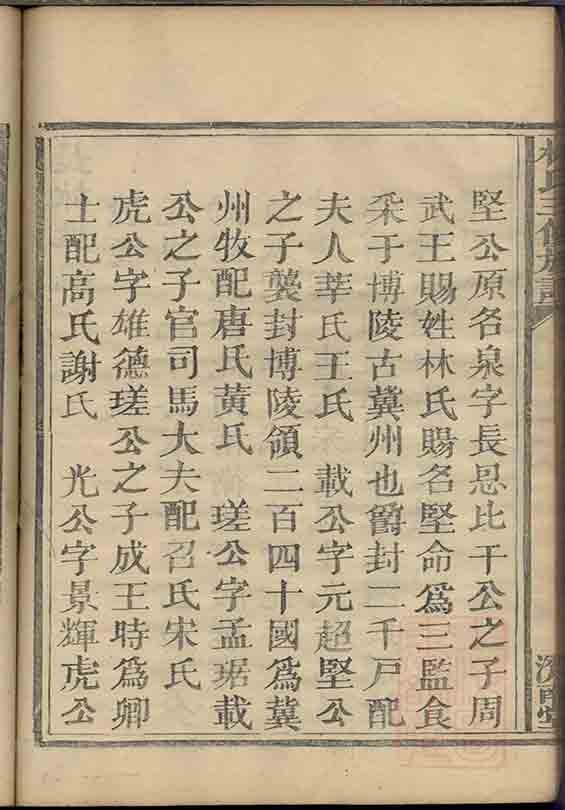 林氏三修族譜
堅公原名泉字長思比干公之子周
武王賜姓林氏賜名堅命爲三監食
采于博陵古冀州也爵封二千戸配
夫人莘氏王氏　載公字元超堅公
之子襲封博陵領二百四十國爲冀
州牧配唐氏黃氏　瑳公字孟琚載
公之子官司馬大夫配召氏宋氏
虎公字雄德瑳公之子成王時爲卿
士配高氏謝氏　光公字景輝虎公